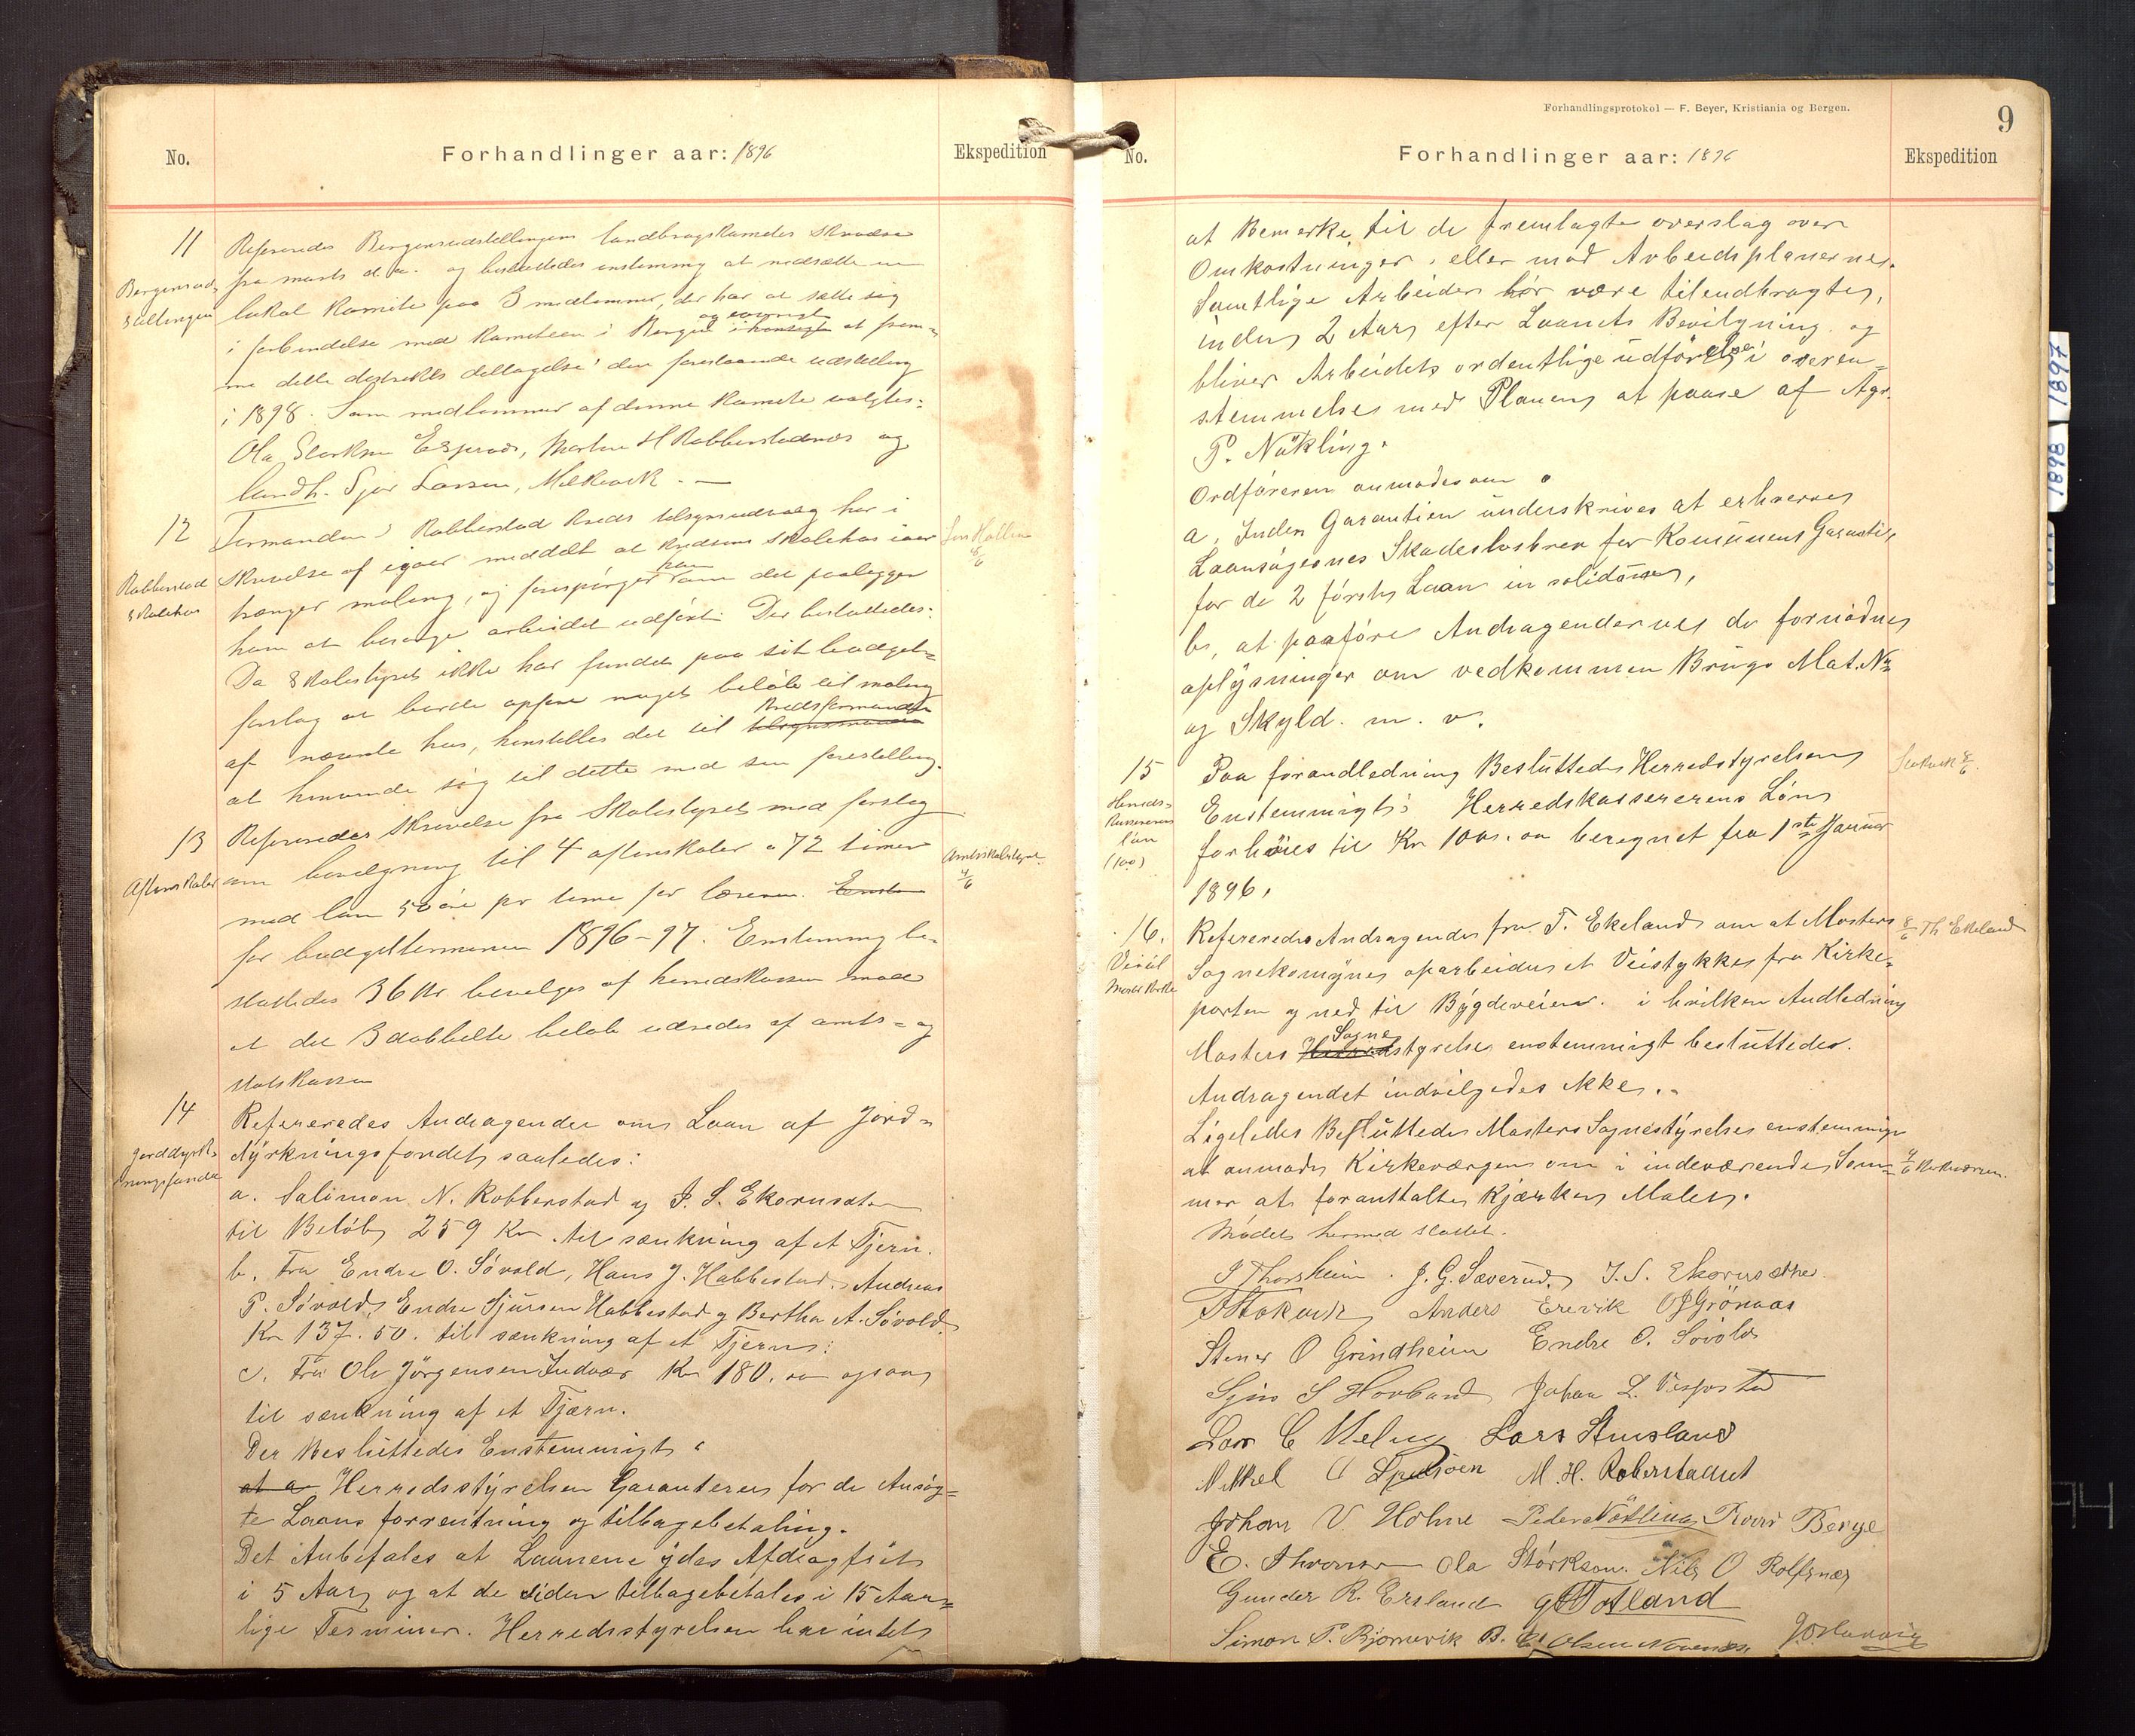 No.
Forhandlinger aar: 1896
Ekspedition
11
Refereredes Bergensudstillingens landbrugskomites skrivelse
Bergensud-
stillingen
fra marts d. a. og besluttedes enstemmig at nedsætte en
lokal komite paa 3 medlemmer, der har at sætte sig
i forbindelse med komiteen i Bergen og at frem-
me dette distrikts deltagelse i den forestaaende udstilling
i 1898. Som medlemmer af denne komite valgtes:
Ola Størksen Espevær, Morten H Robberstadnes og
landh. Sjur Larsen, Mælkevik. —
12
Formanden i Robberstad kreds tilsynsudvalg har i
Jens Kallevik
8/6
Robberstad
skolehus
skrivelse af igaar meddelt at kredsens skolehus iaar
trænger maling, og forespørger om det paalægges
ham at besørge arbeidet udført. Der besluttedes:
Da skolestyret ikke har fundet paa sit budget-
forslag at burde opføre noget beløb til maling
af nævnte hus, henstilles det til kredsformanden
at henvende sig til dette med sin forestilling.
13
Refereredes skrivelse fra skolestyret med forslag
Aftenskoler
om bevilgning til 4 aftenskoler a 72 timer
Amtsskolestyret
4/6
med løn 50 øre pr time for læreren.
for budgetterminen 1896-97. Enstemmig be-
sluttedes 36 Kr. bevilges af herredskassen mod
at det 3 dobbelte beløb udredes af amts- og
statskassen
14
Refereredes Andragender om Laan af Jord-
Jorddyrk-
ningsfondet
dyrkningsfondet saaledes:
a. Salimon N. Robberstad og J. S. Ekornsæter
til Beløb 259 Kr. til sænkning af et Tjern.
b. Fra Endre O. Søvold, Hans J. Habbestad, Andreas
P. Søvold, Endre Sjursen Habbestad og Bertha A. Søvold
Kr 137.50. til sænkning af et Tjern;
c. Fra Ole Jörgensen Indvær Kr 180.00 ogsaa
til sænkning af et Tjærn.
Der Besluttedes Enstemmigt:
at a Herredsstyrelsen Garanterer for de Ansøg-
te Laans forrentning og tilbagebetaling.
Det Anbefales at Laanene ydes Afdragfrit
i 5 Aar og at de siden tilbagebetales i 15 Aar-
lige Terminer. Herredsstyrelsen har intet
Forhandlingsprotokol — F. Beyer, Kristiania og Bergen.
9
No.
Forhandlinger aar: 1896
Ekspedition
at Bemerke til de fremlagte overslag over
Omkostninger, eller mod Arbeidsplanerne.
Samtlige Arbeider bör være tilendbragte,
inden 2 Aar efter Laanets Bevilgning og
bliver Arbeidets ordentlige udförelse i overen-
stemmelse med Planen at paase af Agr.
P. Nökling.
Ordföreren anmodes om
a, Inden Garantien underskrives at erhverve
Laansögernes Skadeslosbrev for Komunens Garanti,
for de 2 förste Laan in solidum,
b, at paaföre Andragenderne de fornødne
oplysninger om vedkommen Brugs Mat. Nr
og Skyld. m. v.
15
Paa foranledning Besluttede Herredstyrelsen
Stokvik 8/6.
Herreds-
kassererens
løn
(100)
Enstemmigt: Herredskassererens Løn
forhøies til Kr 100.00 beregnet fra 1ste Januar
1896.
16.
Refereredes Andragende fra T. Ekeland om at Mosters
8/6 Th Ekeland
Veiøl
Moster Kirke
Sognekomyne oparbeider et Veistykke fra Kirke-
porten og ned til Bygdeveien. i hvilken Andledning
Mosters Herred Sogne styrelse enstemmigt besluttede.
Andragendet indvilgedes ikke.
Ligeledes Besluttede Mosters Sognestyrelse enstemmigt
at anmode Kirkeværgen om i indeværende Som-
4/6 Kirkeværgen.
mer at foranstalte Kjærken Malet.
Mødet hermed sluttet.
I Thorsheim. J. G. Sæverud. J. S. Ekornsæther
Stokvik Anders Erevik O J Grönaas
Stener O Grindheim Endre O. Søvold
Sjur S Hovland Johan L. Vespestad
Lars C Meling Lars Amsland
Mikkel M. H. Robberstadnes
Johan V. Holme Peder Nökling Berge
E. Ola Størksen. Nils O Rolfsnæs
Gunder R. Ersland Totland
Simon P. Bjørnevik B. Olsen
1897
1898